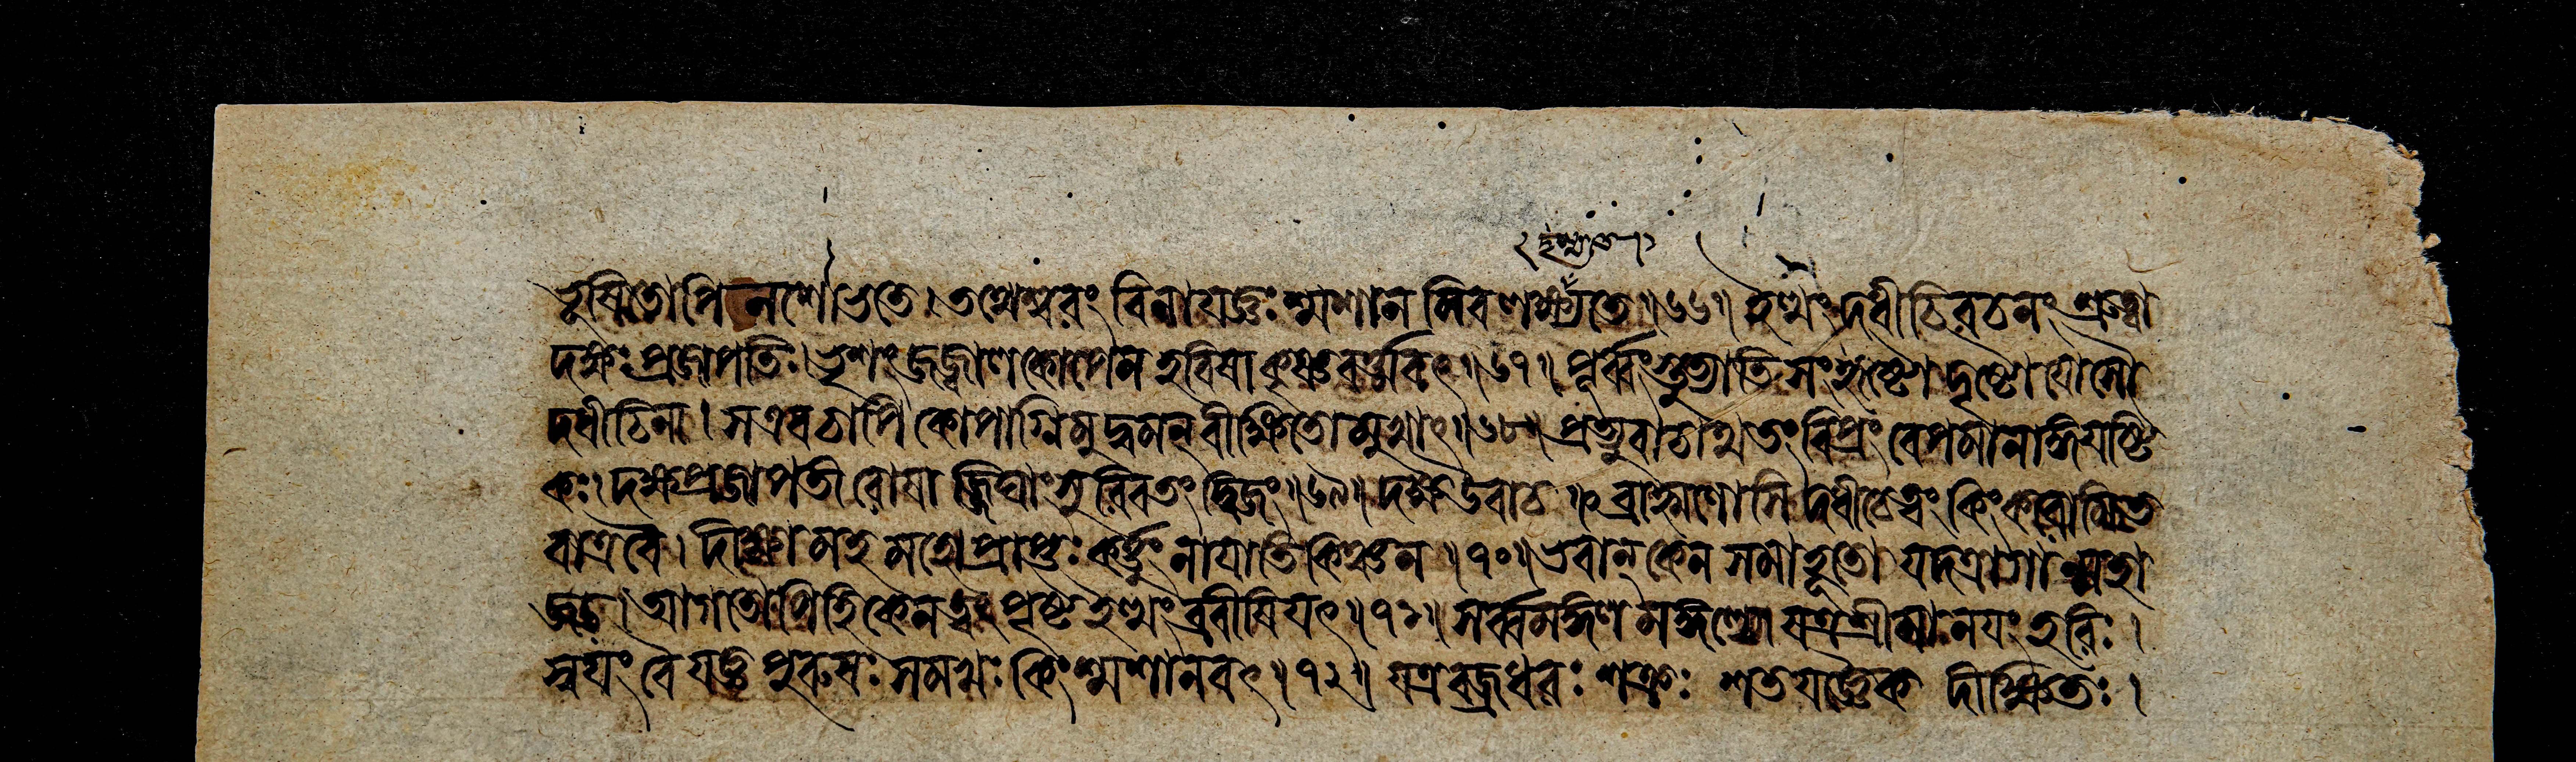 ভূষিতোপি ন শোভেতে। তথেশ্বরং বিনা যজ্ঞঃ শ্মশানমিব লক্ষ্যতে॥৬৬॥ ইত্থং দধীচিবচনং শ্রুত্বা
দক্ষঃ প্রজাপতিঃ। ভৃশং জজ্বাল কোপেন হবিষা কৃষ্ণবর্ত্মবৎ॥৬৭॥ পূর্ব্বং স্তুত্যাতিসংহৃষ্টো দৃষ্টো যোসৌ
দধীচিনা। স এব চাপি কোপাগ্নিমুদ্বমন্ বীক্ষিতো মুখাৎ॥৬৮॥ প্রত্যুবাচাথ তং বিপ্রং বেপমানাঙ্গযষ্টি
কঃ। দক্ষপ্রজাপতী রোষাজ্জিঘাংসুরিব তং দ্বিজং॥৬৯॥ দক্ষ উবাচ॥ ব্রাহ্মণোসি দধীচে ত্বং কিং করোমি ত
বাত্র বৈ। দীক্ষামহমহো প্রাপ্তঃ কর্ত্তুং নাযাতি কিঞ্চন॥৭০॥ ভবান্ কেন সমাহূতো যদত্রাগান্মহা
জড। আগতোপি হি কেন ত্বং পৃষ্ট ইত্থং ব্রবীষি যৎ॥৭১॥ সর্ব্বমঙ্গলমঙ্গল্যো যত্র শ্রীমানযং হরিঃ।
স্বযং বৈ যজ্ঞপুরুষঃ স মখঃ কিং শ্মশানবৎ॥৭২॥ যত্র বজ্রধরঃ শক্রঃ শতযজ্ঞৈকদীক্ষিতঃ।